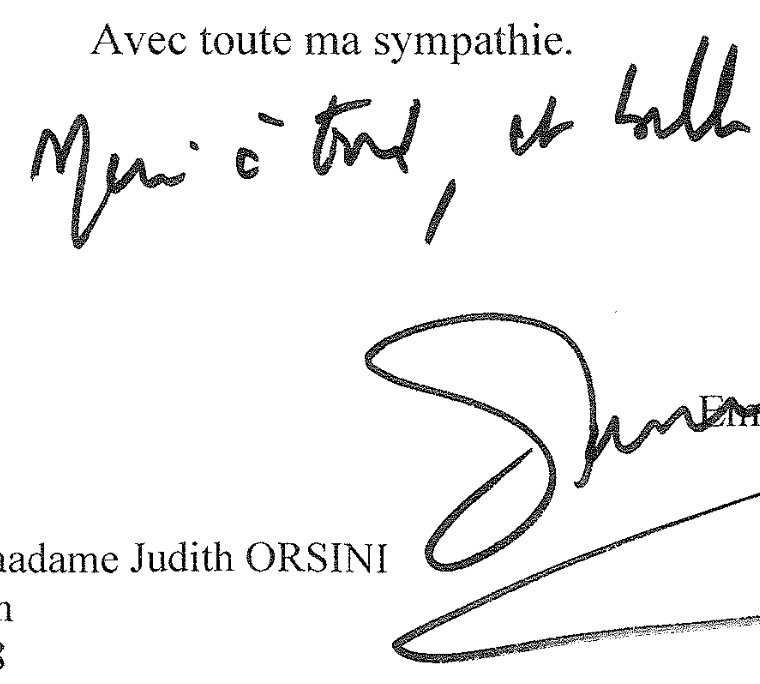 Avec toute ma sympathie.
Merci à tous, et belle
Em
adame Judith ORSINI
n
8